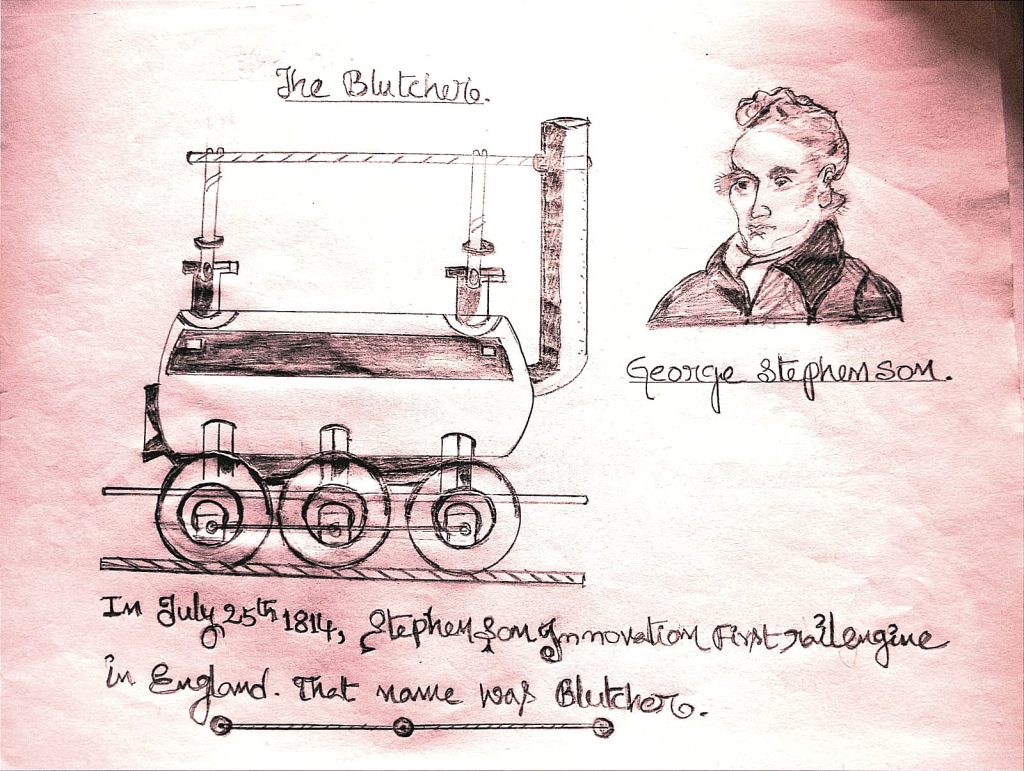 The Blutcher.
George Stephenson.
In July 25th 1814, Stephenson Innovation First railengine
in England. That name was Blutcher.